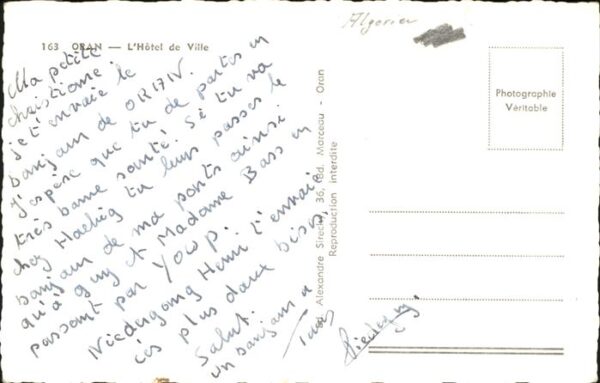 Algerien
163 ORAN — L'Hôtel de Ville
Ma petite
christiane.
je t'envoie le
banjour de ORAN.
J'espère que tu de partes en
très bonne santé. Sé tu va
chez Haehig tu leurs passes le
banjour de ma parts ainsi
qu'à guy et Madame Bass en
passant par Youp.
Niedergang Henri t'envoie
ces plus doux bisou
Salut.
un banjour a
Tous
Ed. Alexandre Sirecky, 36, Bd. Marceau - Oran
Reproduction interdite
Photographie
Véritable